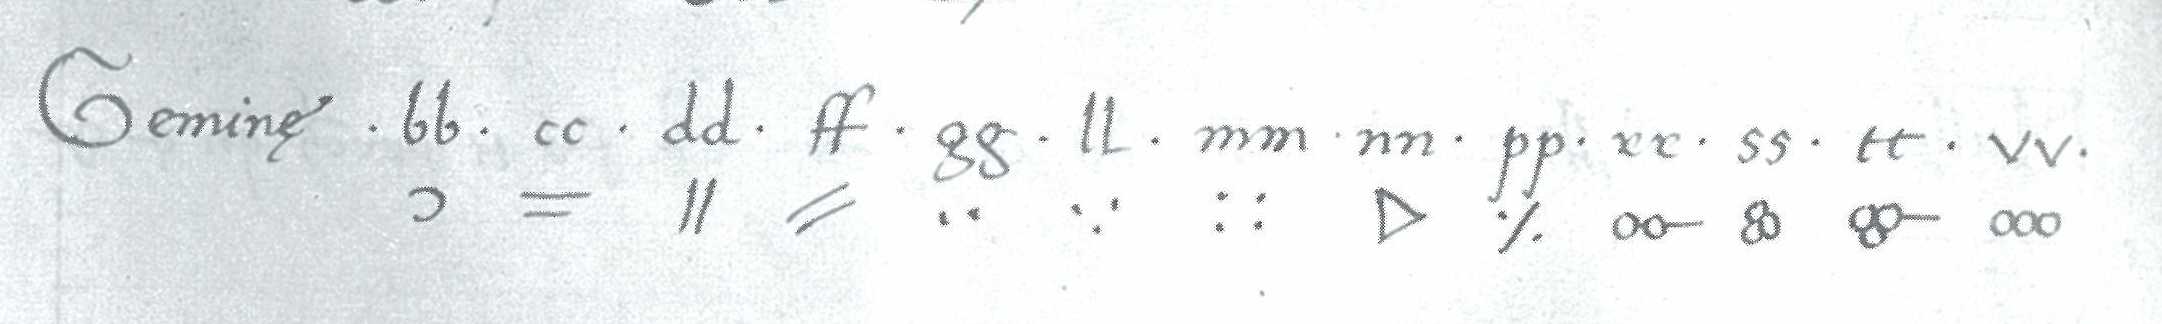 Geminę · bb · cc · dd · ff · gg · ll · mm · nn · pp · rr · ss · tt · vv ·
ɔ = // ⁄⁄ ·· ∵ :: ▷ ⁒ oo– 8o 8o– ooo